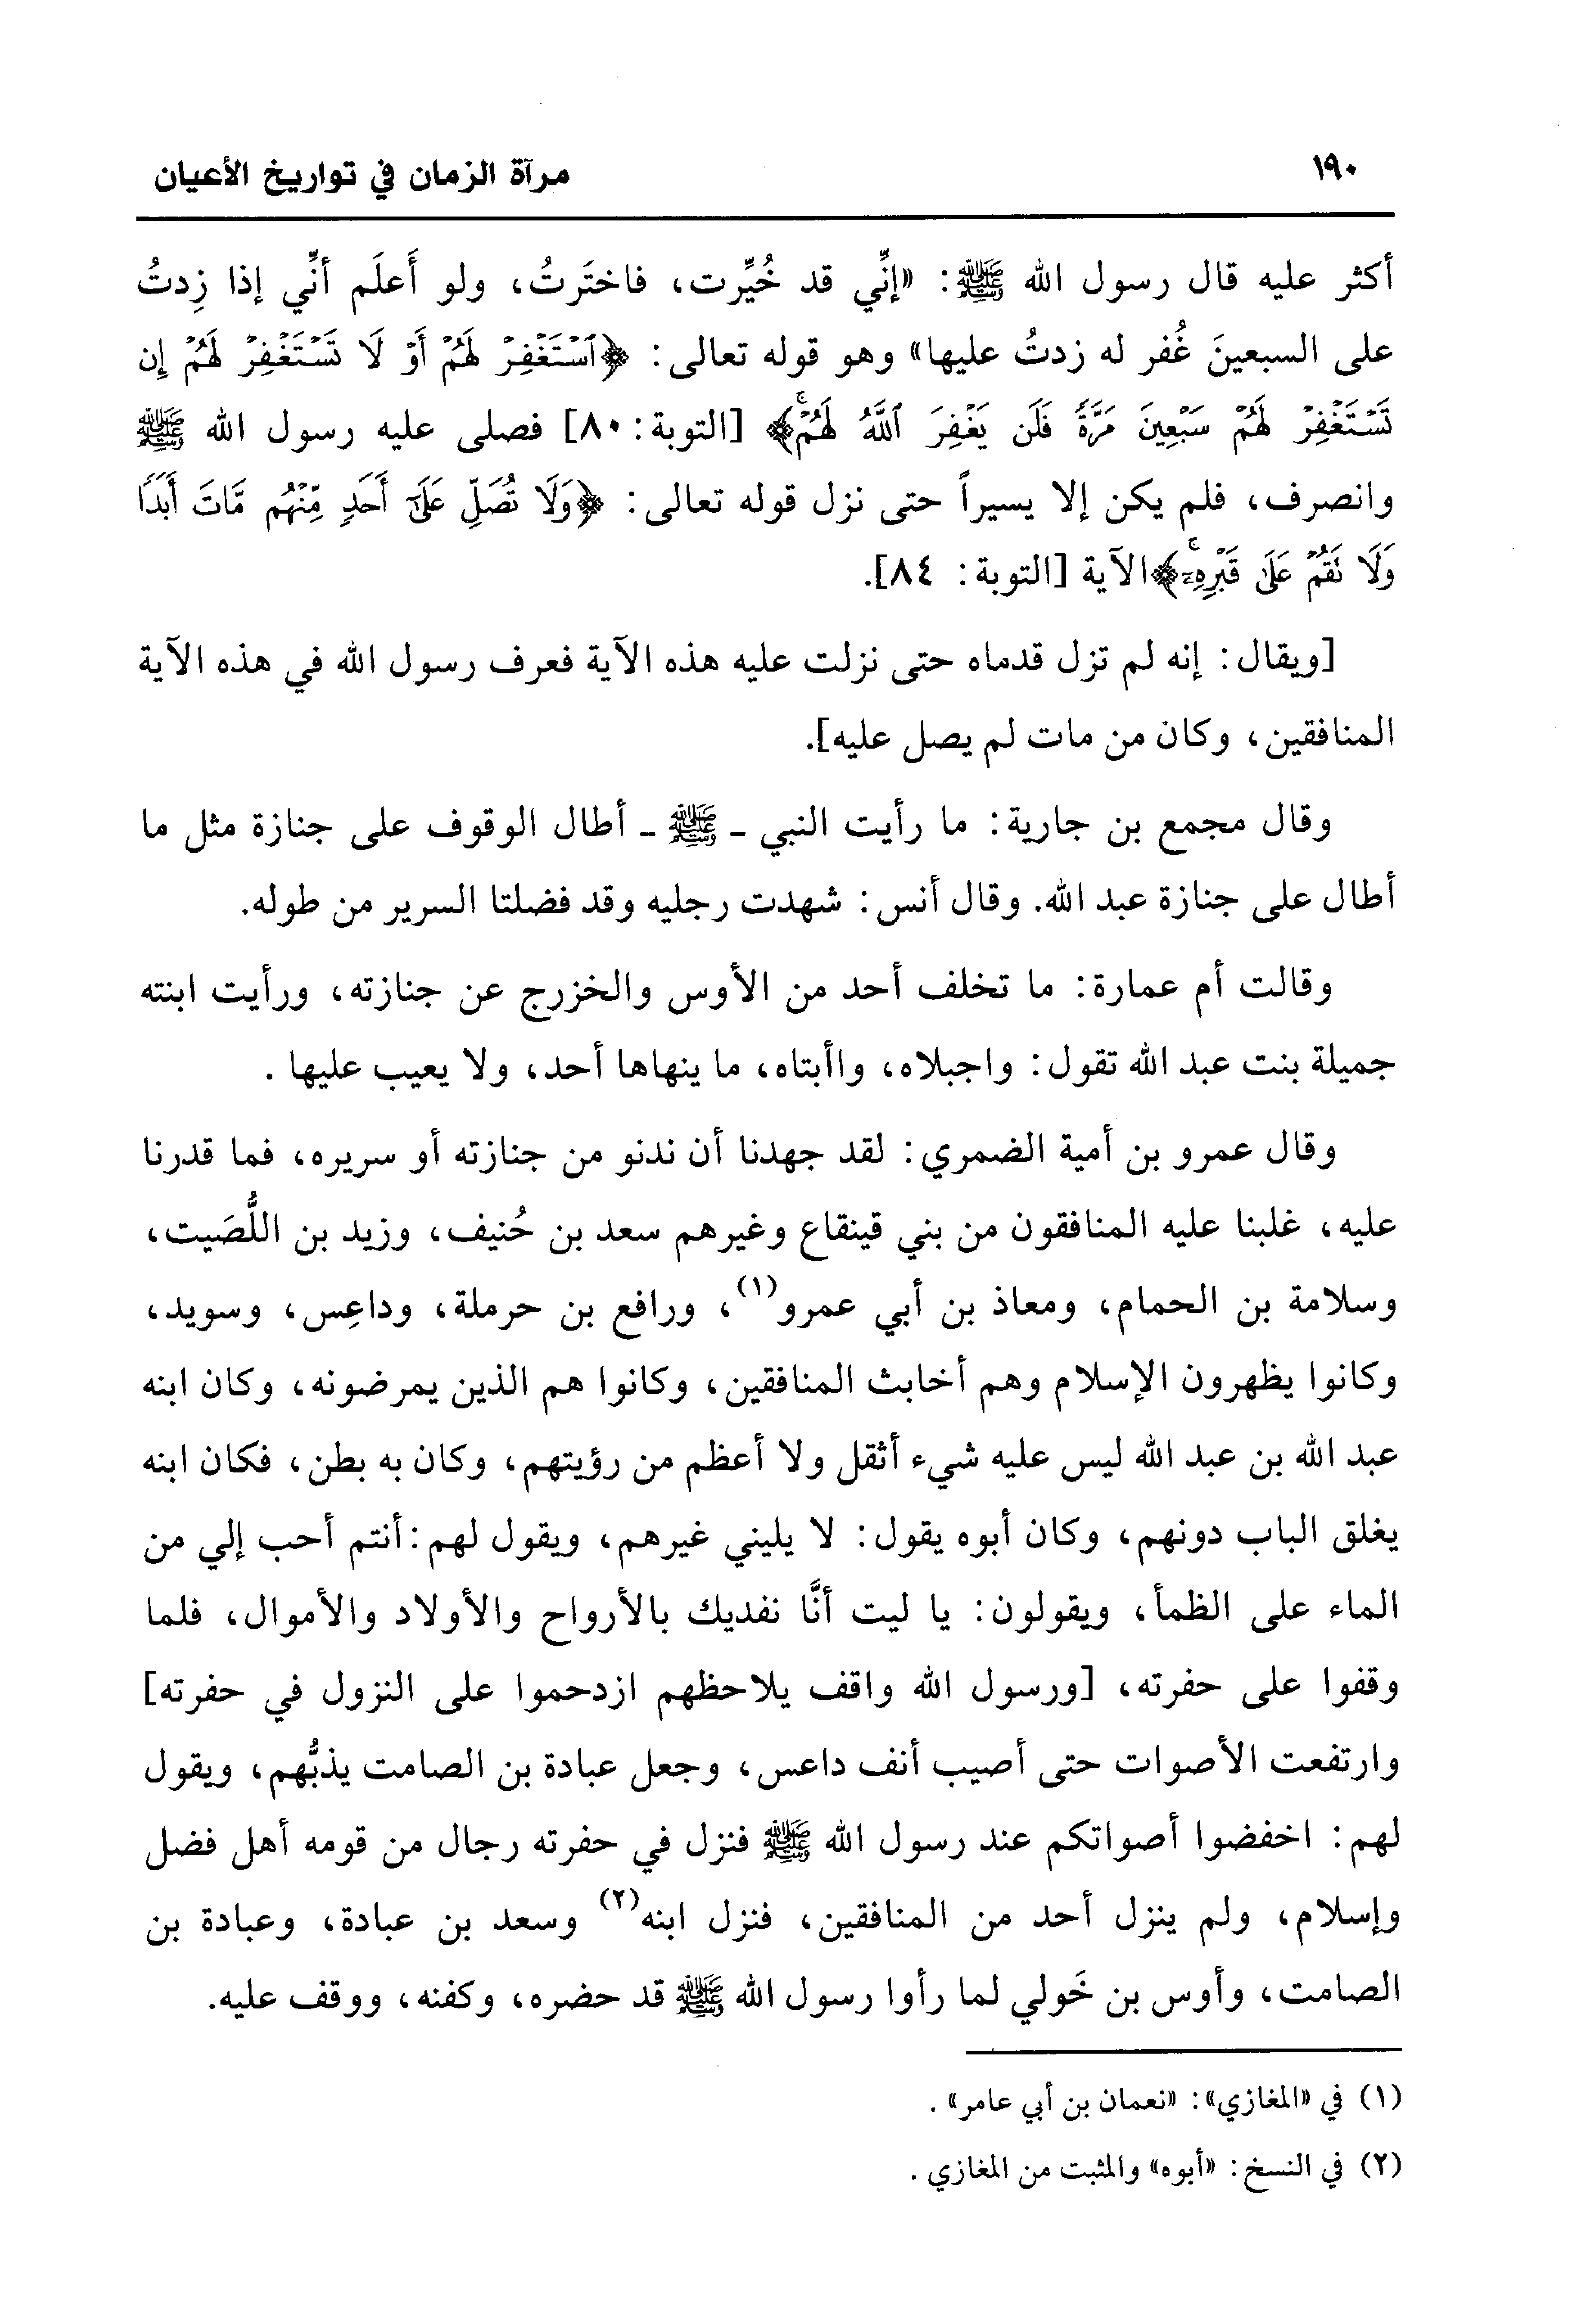 ١٩٠ مرآة الزمان في تواريخ الأعيان
أكثر عليه قال رسول الله ﷺ: «إنِّي قد خُيِّرت، فاختَرتُ، ولو أَعلَم أنِّي إذا زِدتُ
على السبعينَ غُفر له زدتُ عليها» وهو قوله تعالى: ﴿ٱسۡتَغۡفِرۡ لَهُمۡ أَوۡ لَا تَسۡتَغۡفِرۡ لَهُمۡ إِن
تَسۡتَغۡفِرۡ لَهُمۡ سَبۡعِينَ مَرَّةٗ فَلَن يَغۡفِرَ ٱللَّهُ لَهُمۡۚ﴾ [التوبة: ٨٠] فصلى عليه رسول الله ﷺ
وانصرف، فلم يكن إلا يسيراً حتى نزل قوله تعالى: ﴿وَلَا تُصَلِّ عَلَىٰٓ أَحَدٖ مِّنۡهُم مَّاتَ أَبَدٗا
وَلَا تَقُمۡ عَلَىٰ قَبۡرِهِۦٓۚ﴾ الآية [التوبة: ٨٤].
[ويقال: إنه لم تزل قدماه حتى نزلت عليه هذه الآية فعرف رسول الله في هذه الآية
المنافقين، وكان من مات لم يصل عليه].
وقال مجمع بن جارية: ما رأيت النبي - ﷺ - أطال الوقوف على جنازة مثل ما
أطال على جنازة عبد الله. وقال أنس: شهدت رجليه وقد فضلتا السرير من طوله.
وقالت أم عمارة: ما تخلف أحد من الأوس والخزرج عن جنازته، ورأيت ابنته
جميلة بنت عبد الله تقول: واجبلاه، واأبتاه، ما ينهاها أحد، ولا يعيب عليها .
وقال عمرو بن أمية الضمري: لقد جهدنا أن ندنو من جنازته أو سريره، فما قدرنا
عليه، غلبنا عليه المنافقون من بني قينقاع وغيرهم سعد بن حُنيف، وزيد بن اللُّصَيت،
وسلامة بن الحمام، ومعاذ بن أبي عمرو(١)، ورافع بن حرملة، وداعِس، وسويد،
وكانوا يظهرون الإسلام وهم أخابث المنافقين، وكانوا هم الذين يمرضونه، وكان ابنه
عبد الله بن عبد الله ليس عليه شيء أثقل ولا أعظم من رؤيتهم، وكان به بطن، فكان ابنه
يغلق الباب دونهم، وكان أبوه يقول: لا يليني غيرهم، ويقول لهم: أنتم أحب إلي من
الماء على الظمأ، ويقولون: يا ليت أنَّا نفديك بالأرواح والأولاد والأموال، فلما
وقفوا على حفرته، [ورسول الله واقف يلاحظهم ازدحموا على النزول في حفرته]
وارتفعت الأصوات حتى أصيب أنف داعس، وجعل عبادة بن الصامت يذبُّهم، ويقول
لهم: اخفضوا أصواتكم عند رسول الله ﷺ فنزل في حفرته رجال من قومه أهل فضل
وإسلام، ولم ينزل أحد من المنافقين، فنزل ابنه(٢) وسعد بن عبادة، وعبادة بن
الصامت، وأوس بن خَولي لما رأوا رسول الله ﷺ قد حضره، وكفنه، ووقف عليه.
(١) في «المغازي»: «نعمان بن أبي عامر» .
(٢) في النسخ: «أبوه» والمثبت من المغازي .